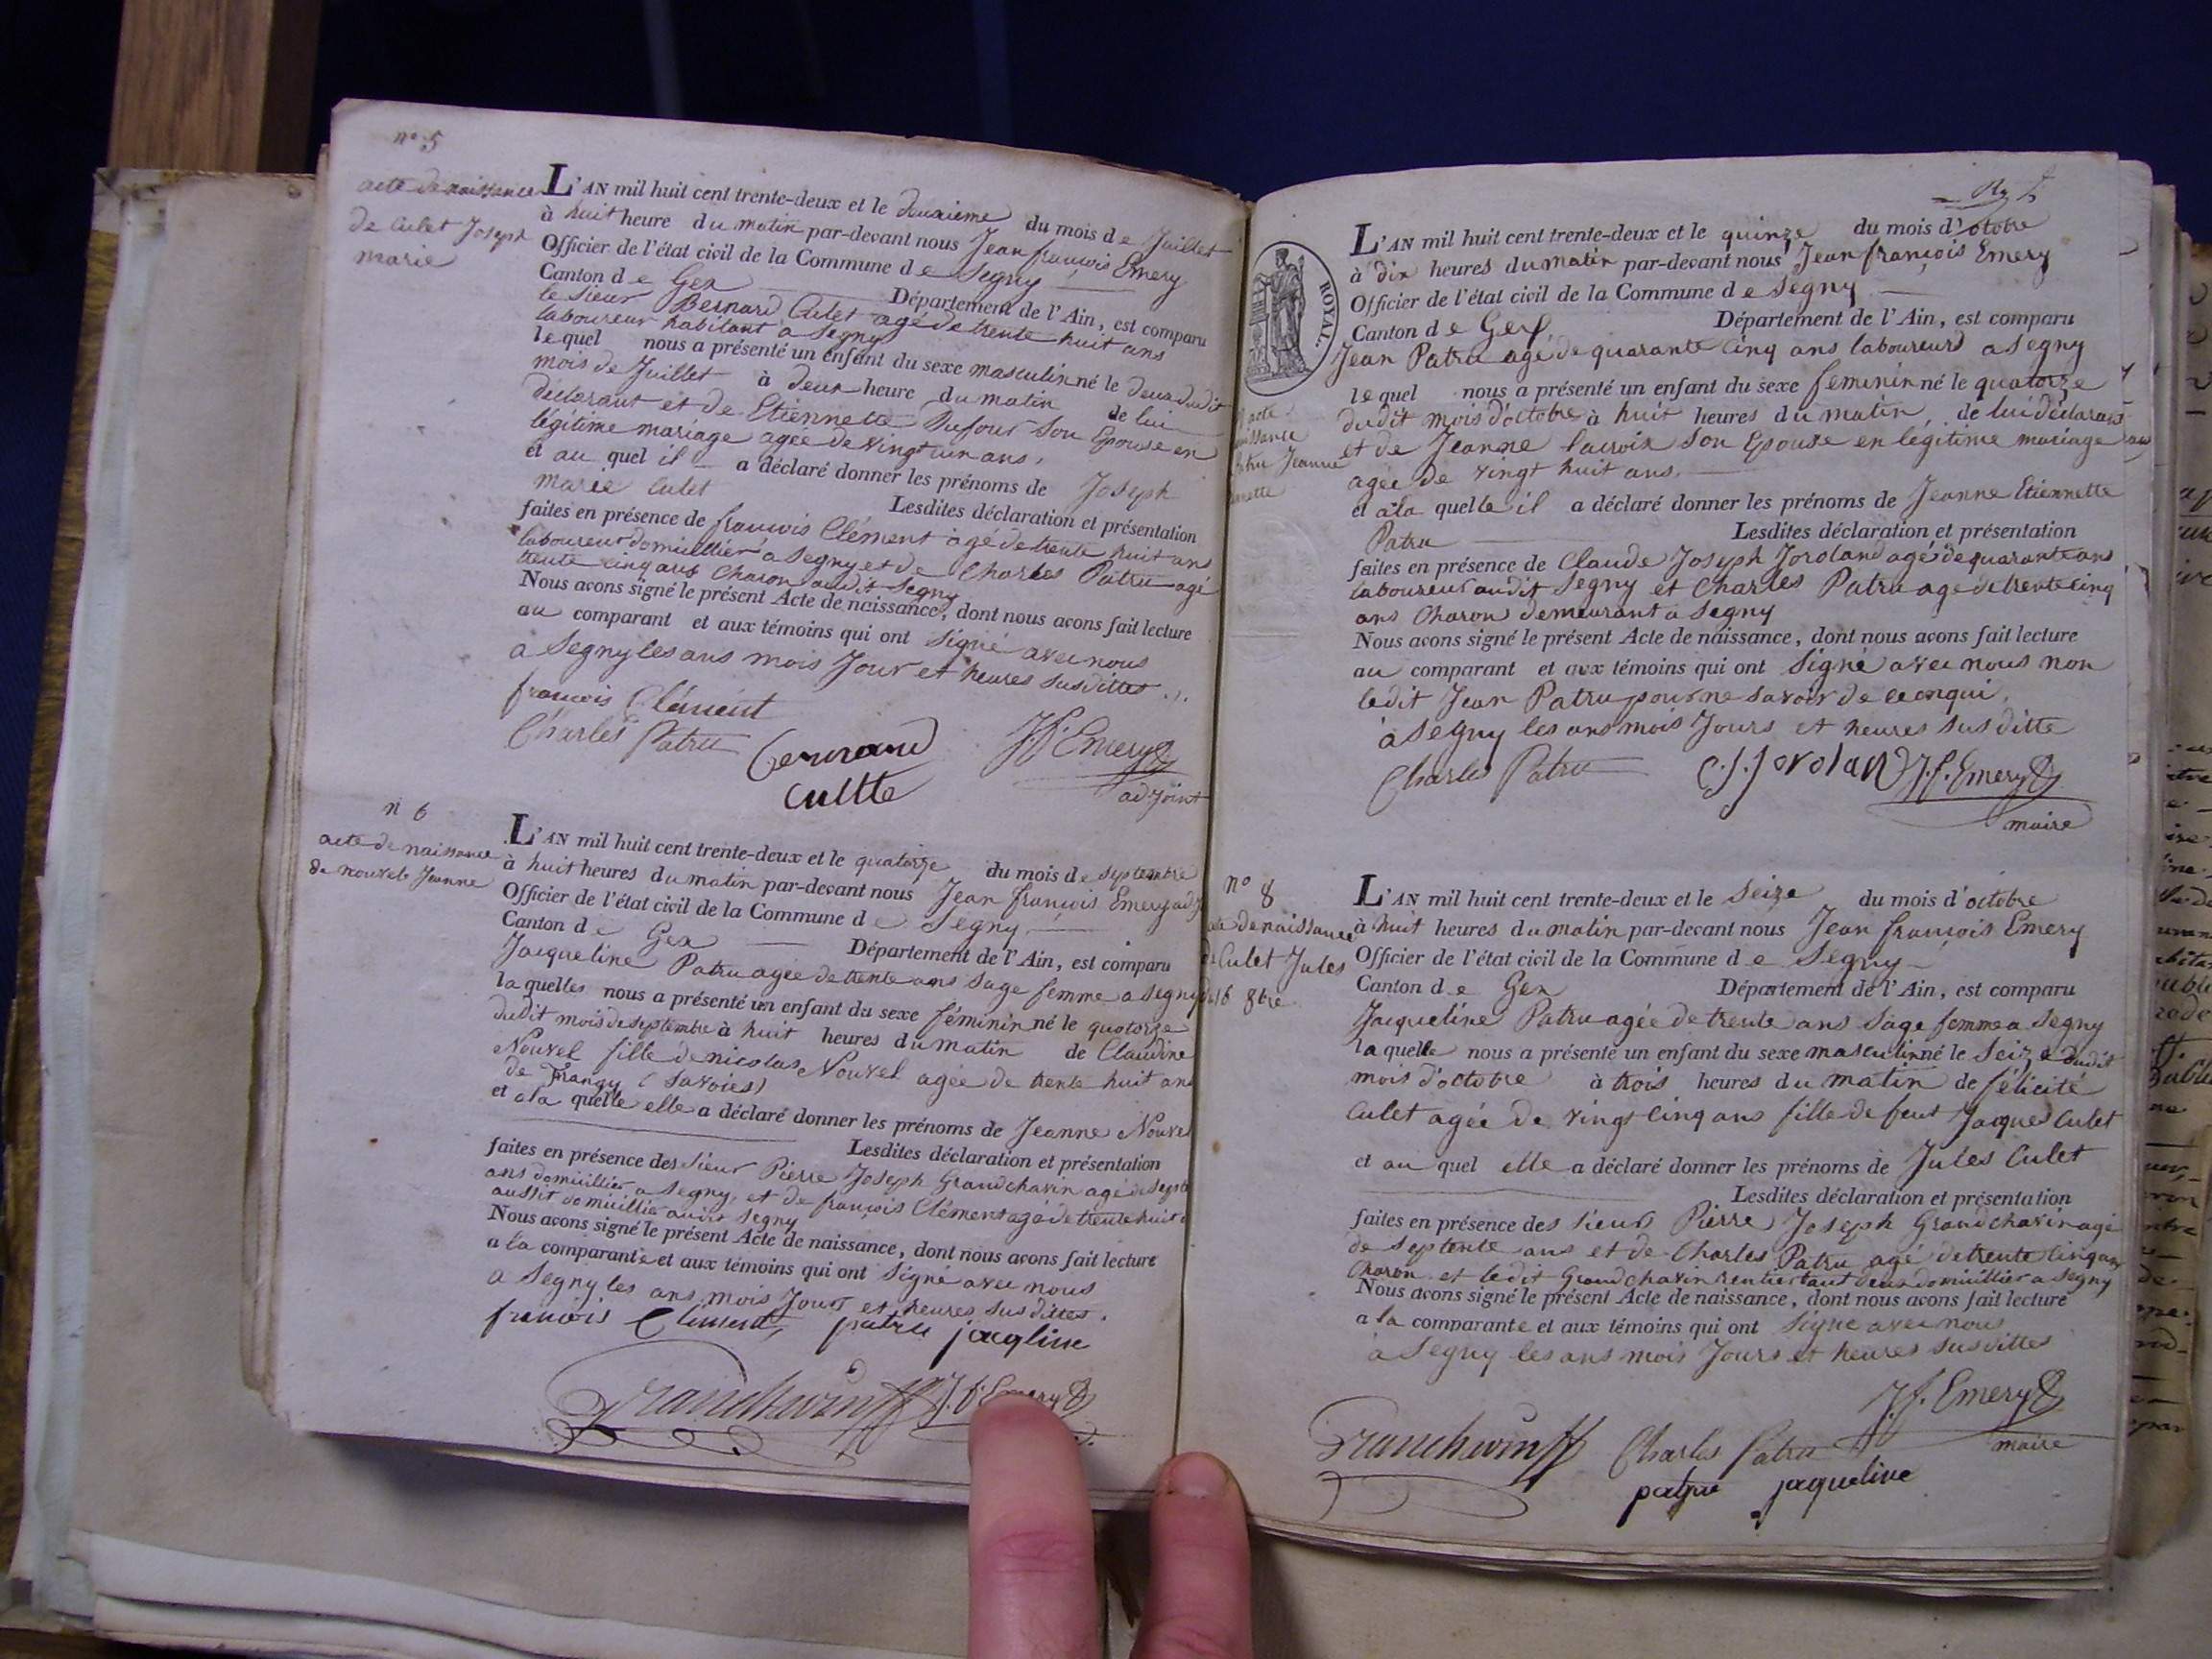 n° 5
acte de naissance
de Culet Joseph
marie
L'AN mil huit cent trente-deux et le deuxieme du mois de Juillet
à huit heure du matin par-devant nous Jean françois Emery
Officier de l'état civil de la Commune de Segny
Canton de Gex Département de l'Ain, est comparu
le Sieur Bernard Culet agé de trente huit ans
laboureur habitant a Segny
lequel nous a présenté un enfant du sexe masculin né le deux dudit
mois de Juillet à deux heure du matin de lui
déclarant et de Etiennette Dufour Son Epouse en
légitime mariage agée de vingt un ans,
et au quel il a déclaré donner les prénoms de Joseph
marie Culet Lesdites déclaration et présentation
faites en présence de françois Clément agé de trente huit ans
laboureur domicillier a Segny et de Charles Patru agé
trente cinq ans Charon audit Segny
Nous avons signé le présent Acte de naissance, dont nous avons fait lecture
au comparant et aux témoins qui ont Signé avec nous
a Segny les ans mois Jour et heures susdittes
françois Clément
Charles Patru
J.f. Emery
Cultte
adjoint
n 6
acte de naissance
de nouvel Jeanne
L'AN mil huit cent trente-deux et le quatorze du mois de septembre
à huit heures du matin par-devant nous Jean françois Emery adj
Officier de l'état civil de la Commune de Segny
Canton de Gex Département de l'Ain, est comparu
Jacqueline Patru agée de trente ans Sage femme a Segny
laquelles nous a présenté un enfant du sexe féminin né le quatorze
dudit mois de Septembre à huit heures du matin de Claudine
Nouvel fille de nicolas Nouvel agée de trente huit ans
de Frangy (Savoies)
et a la quelle elle a déclaré donner les prénoms de Jeanne Nouvel
Lesdites déclaration et présentation
faites en présence des Sieur Pierre Joseph Grandchavin agé de
ans domicillier a Segny, et de françois Clément agé de trente huit
aussit domicillié audit Segny
Nous avons signé le présent Acte de naissance, dont nous avons fait lecture
a la comparante et aux témoins qui ont Signé avec nous
a Segny les ans mois Jour et heures susdittes.
françois Clément patru jacqline
Grandchavin J.f. Emery
ROYAL.
acte
naissance
patru Jeanne
L'AN mil huit cent trente-deux et le quinze du mois d'octobre
à dix heures du matin par-devant nous Jean françois Emery
Officier de l'état civil de la Commune de Segny
Canton de Gex Département de l'Ain, est comparu
Jean Patru agé de quarante cinq ans laboureurs a Segny
lequel nous a présenté un enfant du sexe feminin né le quatorze
dudit mois d'octobre à huit heures du matin de lui déclarans
et de Jeanne lacroix Son Epouse en légitime mariage
agée de vingt huit ans.
et a la quelle il a déclaré donner les prénoms de Jeanne Etiennette
Patru Lesdites déclaration et présentation
faites en présence de Claude Joseph Joroland agé de quarante ans
laboureur audit Segny et Charles Patru agé de trente cinq
ans Charon demeurant a Segny
Nous avons signé le présent Acte de naissance, dont nous avons fait lecture
au comparant et aux témoins qui ont Signé avec nous non
ledit Jean Patru pour ne Savoir de ce enqui.
à Segny les ans mois Jours et heures Susditte
Charles Patru C.J. Joroland J.f. Emery
maire
n° 8
acte de naissance
de Culet Jules
du 16 8bre
L'AN mil huit cent trente-deux et le Seize du mois d'octobre
à huit heures du matin par-devant nous Jean françois Emery
Officier de l'état civil de la Commune de Segny
Canton de Gex Département de l'Ain, est comparu
Jacqueline Patru agée de trente ans Sage femme a Segny
laquelle nous a présenté un enfant du sexe masculin né le Seize dudit
mois d'octobre à trois heures du matin de félicité
Culet agée de vingt cinq ans fille de feut Jacques Culet
et au quel elle a déclaré donner les prénoms de Jules Culet
Lesdites déclaration et présentation
faites en présence des Sieurs Pierre Joseph Grandchavin agé
de Septente ans et de Charles Patru agé de trente cinq ans
Charon et ledit Grandchavin rentier tout deux domicillier a Segny
Nous avons signé le présent Acte de naissance, dont nous avons fait lecture
a la comparante et aux témoins qui ont Signé avec nous
à Segny les ans mois Jours et heures susdittes
J.f. Emery
Grandchavin Charles Patru maire
patru jaqueline